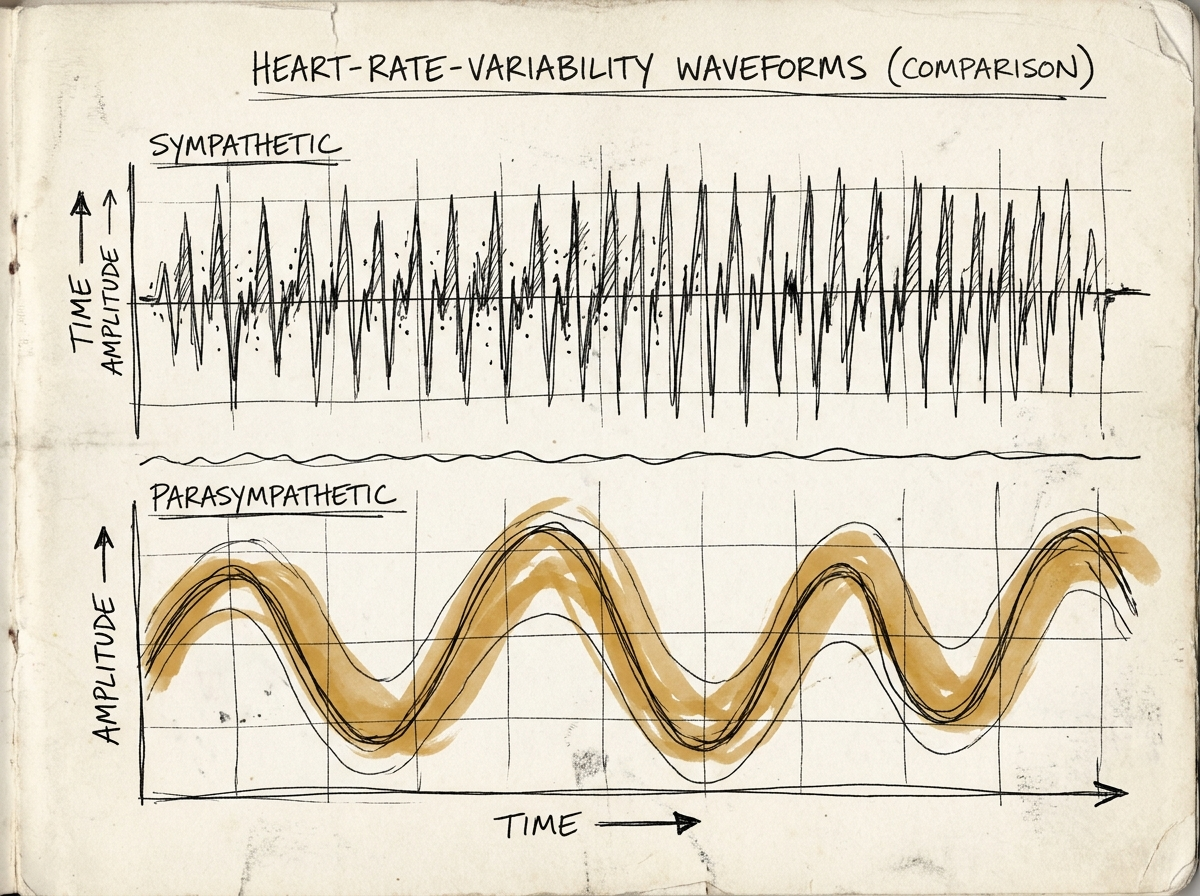 HEART-RATE-VARIABILITY WAVEFORMS (COMPARISON)
SYMPATHETIC
TIME
AMPLITUDE
PARASYMPATHETIC
AMPLITUDE
TIME